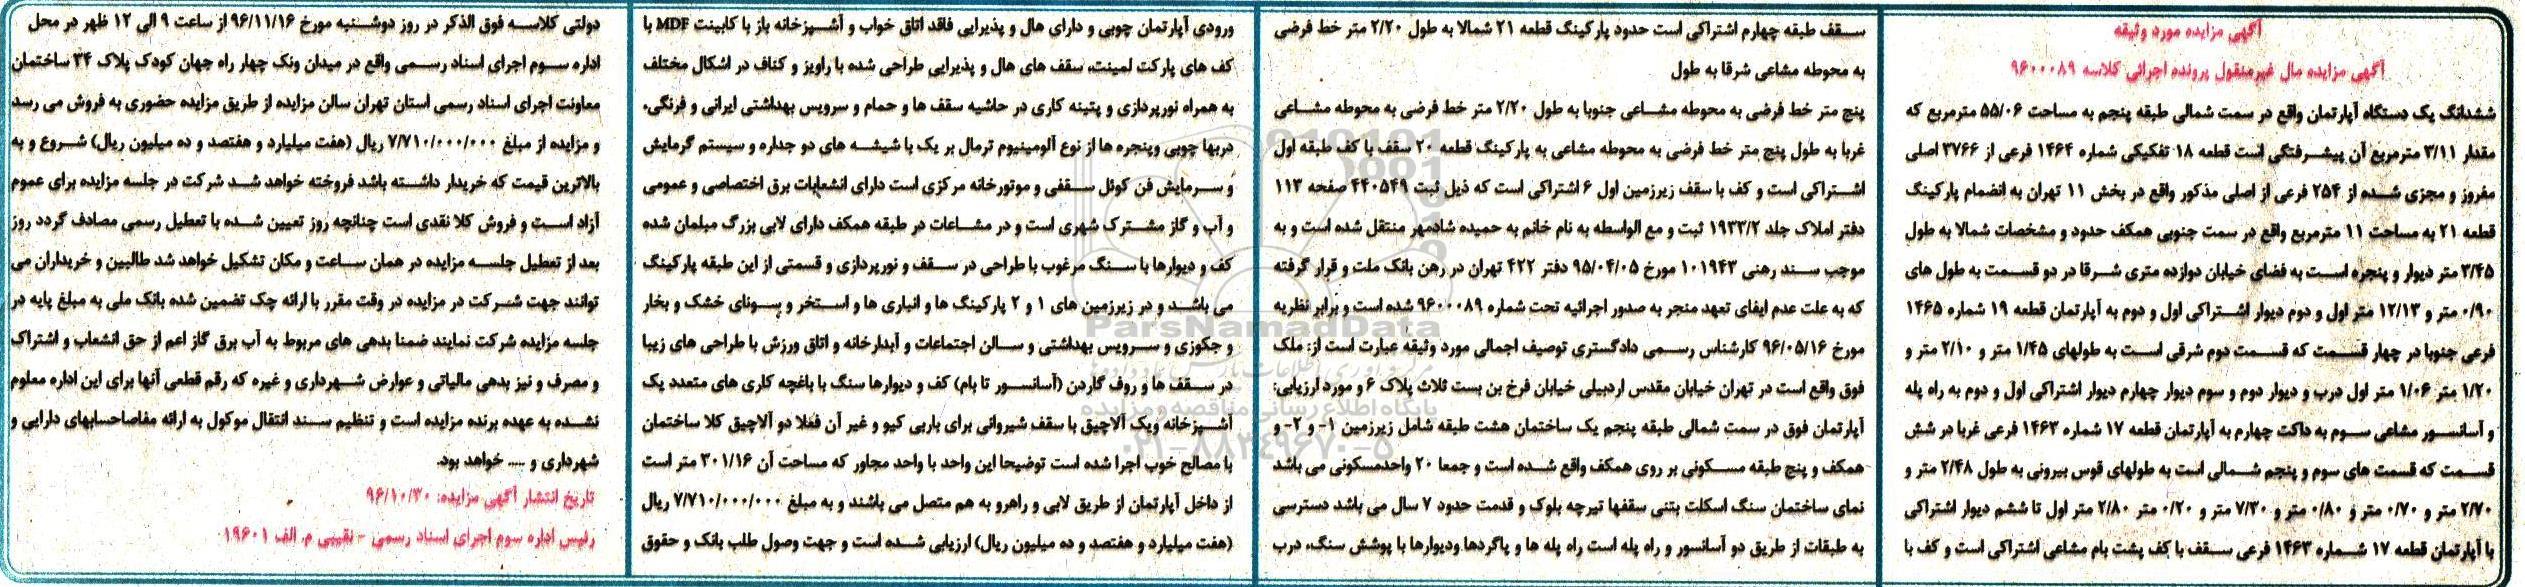 آگهی مزایده مورد وثیقه
آگهی مزایده مال غیرمنقول پرونده اجرائی کلاسه ۹۶۰۰۰۸۹
ششدانگ یک دستگاه آپارتمان واقع در سمت شمالی طبقه پنجم به مساحت ۵۵/۰۶ مترمربع که
مقدار ۳/۱۱ مترمربع آن پیشرفتگی است قطعه ۱۸ تفکیکی شماره ۱۴۶۴ فرعی از ۳۷۶۶ اصلی
مفروز و مجزی شده از ۲۵۴ فرعی از اصلی مذکور واقع در بخش ۱۱ تهران به انضمام پارکینگ
قطعه ۲۱ به مساحت ۱۱ مترمربع واقع در سمت جنوبی همکف حدود و مشخصات شمالا به طول
۳/۴۵ متر دیوار و پنجره است به فضای خیابان دوازده متری شرقا در دو قسمت به طول های
۰/۹۰ متر و ۱۲/۱۳ متر اول و دوم دیوار اشتراکی اول و دوم به آپارتمان قطعه ۱۹ شماره ۱۴۶۵
فرعی جنوبا در چهار قسمت که قسمت دوم شرقی است به طولهای ۱/۴۵ متر و ۲/۱۰ متر و
۱/۲۰ متر ۱/۰۶ متر اول درب و دیوار دوم و سوم دیوار چهارم دیوار اشتراکی اول و دوم به راه پله
و آسانسور مشاعی سوم به داکت چهارم به آپارتمان قطعه ۱۷ شماره ۱۴۶۳ فرعی غربا در شش
قسمت که قسمت های سوم و پنجم شمالی است به طولهای قوس بیرونی به طول ۲/۴۸ متر و
۲/۷۰ متر و ۰/۷۰ متر و ۰/۸۰ متر و ۷/۳۰ متر و ۰/۲۰ متر ۲/۸۰ متر اول تا ششم دیوار اشتراکی
با آپارتمان قطعه ۱۷ شماره ۱۴۶۳ فرعی سقف با کف پشت بام مشاعی اشتراکی است و کف با
سقف طبقه چهارم اشتراکی است حدود پارکینگ قطعه ۲۱ شمالا به طول ۲/۲۰ متر خط فرضی
به محوطه مشاعی شرقا به طول
پنج متر خط فرضی به محوطه مشاعی جنوبا به طول ۲/۲۰ متر خط فرضی به محوطه مشاعی
غربا به طول پنج متر خط فرضی به محوطه مشاعی به پارکینگ قطعه ۲۰ سقف با کف طبقه اول
اشتراکی است و کف با سقف زیرزمین اول ۶ اشتراکی است که ذیل ثبت ۴۴۰۵۴۹ صفحه ۱۱۳
دفتر املاک جلد ۱۹۳۳/۲ ثبت و مع الواسطه به نام خانم به حمیده شادمهر منتقل شده است و به
موجب سند رهنی ۱۰۱۹۴۳ مورخ ۹۵/۰۴/۰۵ دفتر ۴۲۲ تهران در رهن بانک ملت و قرار گرفته
که به علت عدم ایفای تعهد منجر به صدور اجرائیه تحت شماره ۹۶۰۰۰۸۹ شده است و برابر نظریه
مورخ ۹۶/۰۵/۱۶ کارشناس رسمی دادگستری توصیف اجمالی مورد وثیقه عبارت است از: ملک
فوق واقع است در تهران خیابان مقدس اردبیلی خیابان فرخ بن بست ثلاث پلاک ۶ و مورد ارزیابی:
آپارتمان فوق در سمت شمالی طبقه پنجم یک ساختمان هشت طبقه شامل زیرزمین ۱- و ۲- و
همکف و پنج طبقه مسکونی بر روی همکف واقع شده است و جمعا ۲۰ واحدمسکونی می باشد
نمای ساختمان سنگ اسکلت بتنی سقفها تیرچه بلوک و قدمت حدود ۷ سال می باشد دسترسی
به طبقات از طریق دو آسانسور و راه پله است راه پله ها و پاگردها ودیوارها با پوشش سنگ، درب
ورودی آپارتمان چوبی و دارای هال و پذیرایی فاقد اتاق خواب و آشپزخانه باز با کابینت MDF با
کف های پارکت لمینت، سقف های هال و پذیرایی طراحی شده با راویز و کناف در اشکال مختلف
به همراه نورپردازی و پتینه کاری در حاشیه سقف ها و حمام و سرویس بهداشتی ایرانی و فرنگی،
دربها چوبی وپنجره ها از نوع آلومینیوم ترمال بر یک با شیشه های دو جداره و سیستم گرمایش
و سرمایش فن کوئل سقفی و موتورخانه مرکزی است دارای انشعابات برق اختصاصی و عمومی
و آب و گاز مشترک شهری است و در مشاعات در طبقه همکف دارای لابی بزرگ مبلمان شده
کف و دیوارها با سنگ مرغوب با طراحی در سقف و نورپردازی و قسمتی از این طبقه پارکینگ
می باشد و در زیرزمین های ۱ و ۲ پارکینگ ها و انباری ها و استخر و سونای خشک و بخار
و جکوزی و سرویس بهداشتی و سالن اجتماعات و آبدارخانه و اتاق ورزش با طراحی های زیبا
در سقف ها و روف گاردن (آسانسور تا بام) کف و دیوارها سنگ با باغچه کاری های متعدد یک
آشپزخانه ویک آلاچیق با سقف شیروانی برای باربی کیو و غیر آن فعلا دو آلاچیق کلا ساختمان
با مصالح خوب اجرا شده است توضیحا این واحد با واحد مجاور که مساحت آن ۳۰۱/۱۶ متر است
از داخل آپارتمان از طریق لابی و راهرو به هم متصل می باشند و به مبلغ ۷/۷۱۰/۰۰۰/۰۰۰ ریال
(هفت میلیارد و هفتصد و ده میلیون ریال) ارزیابی شده است و جهت وصول طلب بانک و حقوق
دولتی کلاسه فوق الذکر در روز دوشنبه مورخ ۹۶/۱۱/۱۶ از ساعت ۹ الی ۱۲ ظهر در محل
اداره سوم اجرای اسناد رسمی واقع در میدان ونک چهار راه جهان کودک پلاک ۳۴ ساختمان
معاونت اجرای اسناد رسمی استان تهران سالن مزایده از طریق مزایده حضوری به فروش می رسد
و مزایده از مبلغ ۷/۷۱۰/۰۰۰/۰۰۰ ریال (هفت میلیارد و هفتصد و ده میلیون ریال) شروع و به
بالاترین قیمت که خریدار داشته باشد فروخته خواهد شد شرکت در جلسه مزایده برای عموم
آزاد است و فروش کلا نقدی است چنانچه روز تعیین شده با تعطیل رسمی مصادف گردد روز
بعد از تعطیل جلسه مزایده در همان ساعت و مکان تشکیل خواهد شد طالبین و خریداران می
توانند جهت شرکت در مزایده در وقت مقرر با ارائه چک تضمین شده بانک ملی به مبلغ پایه در
جلسه مزایده شرکت نمایند ضمنا بدهی های مربوط به آب برق گاز اعم از حق انشعاب و اشتراک
و مصرف و نیز بدهی مالیاتی و عوارض شهرداری و غیره که رقم قطعی آنها برای این اداره معلوم
نشده به عهده برنده مزایده است و تنظیم سند انتقال موکول به ارائه مفاصاحسابهای دارایی و
شهرداری و .... خواهد بود.
تاریخ انتشار آگهی مزایده: ۹۶/۱۰/۳۰
رئیس اداره سوم اجرای اسناد رسمی - نقیبی م. الف ۱۹۶۰۱
ParsNamadData
پایگاه اطلاع رسانی مناقصه و مزایده
۰۲۱-۸۸۳۴۹۶۷۰-۵